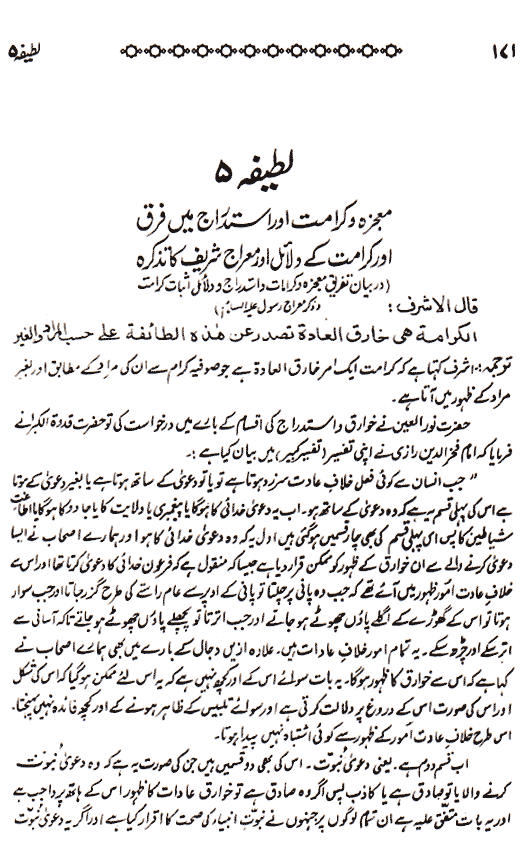 ۱۷۱ لطیفہ ۵
لطیفہ ۵
معجزہ و کرامت اور استدراج میں فرق
اور کرامت کے دلائل اور معراج شریف کا تذکرہ
(در بیان تفریق معجزہ و کرامات و استدراج و دلائل اثبات کرامت
و ذکر معراج رسول علیہ السلام)
قال الاشرف :
الکرامۃ ھی خارق العادۃ تصدر عن ھذہ الطائفۃ علی حسب المراد والغیر
ترجمہ :- اشرف کہتا ہے کہ کرامت ایک امر خارق العادۃ ہے جو صوفیہ کرام سے ان کی مراد کے مطابق اور بغیر
مراد کے ظہور میں آتا ہے۔
حضرت نور العین نے خوارق و استدراج کی اقسام کے بارے میں درخواست کی تو حضرت قدوۃ الکبرا نے
فرمایا کہ امام فخر الدین رازی نے اپنی تفسیر (تفسیر کبیر) میں بیان کیا ہے :-
" جب انسان سے کوئی فعل خلاف عادت سرزد ہوتا ہے تو یا تو دعویٰ کے ساتھ ہوتا ہے یا بغیر دعویٰ کے ہوتا
ہے اس کی پہلی قسم یہ ہے کہ وہ دعویٰ کے ساتھ ہو۔ اب یہ دعویٰ خدائی کا ہوگا یا پیغمبری یا ولایت کا یا جادو کا ہوگا یا اطاعت
شیاطین کا پس اس پہلی قسم کی بھی چار قسمیں ہوگئی ہیں اول یہ کہ وہ دعویٰ خدائی کا ہو اور ہمارے اصحاب نے ایسا
دعویٰ کرنے والے سے ان خوارق کے ظہور کو ممکن قرار دیا ہے جیسا کہ منقول ہے کہ فرعون خدائی کا دعویٰ کرتا تھا اور اس سے
خلاف عادت امور ظہور میں آئے تھے کہ جب وہ پانی پر چلتا تو پانی کے اوپر سے عام راستے کی طرح گزر جاتا اور جب سوار
ہوتا تو اس کے گھوڑے کے اگلے پاؤں چھوٹے ہو جاتے اور جب اترتا تو پچھلے پاؤں چھوٹے ہو جاتے تاکہ آسانی سے
اتر سکے اور چڑھ سکے۔ یہ تمام امور خلاف عادات ہیں۔ علاوہ ازیں دجال کے بارے میں بھی ہمارے اصحاب نے
کہا ہے کہ اس سے خوارق کا ظہور ہوگا۔ یہ بات سوائے اس کے اور کچھ نہیں ہے کہ یہ اس لئے ممکن ہوگیا کہ اس کی شکل
اور اس کی صورت اس کے دروغ پر دلالت کرتی ہے اور سوائے تلبیس کے ظاہر ہونے کے اور کچھ فائدہ نہیں پہنچتا۔
اس طرح خلاف عادت امور کے ظہور سے کوئی اشتباہ نہیں پیدا ہوتا۔
اب قسم دوم ہے۔ یعنی دعویٰ نبوت۔ اس کی بھی دو قسمیں ہیں جن کی صورت یہ ہے کہ وہ دعویٰ نبوت
کرنے والا یا تو صادق ہے یا کاذب پس اگر وہ صادق ہے تو خوارق عادات کا ظہور اس کے ہاتھ پر واجب ہے
اور یہ بات متفق علیہ ہے ان تمام لوگوں پر جنہوں نے نبوت انبیاء کی صحت کا اقرار کیا ہے اور اگر یہ دعویٰ نبوت